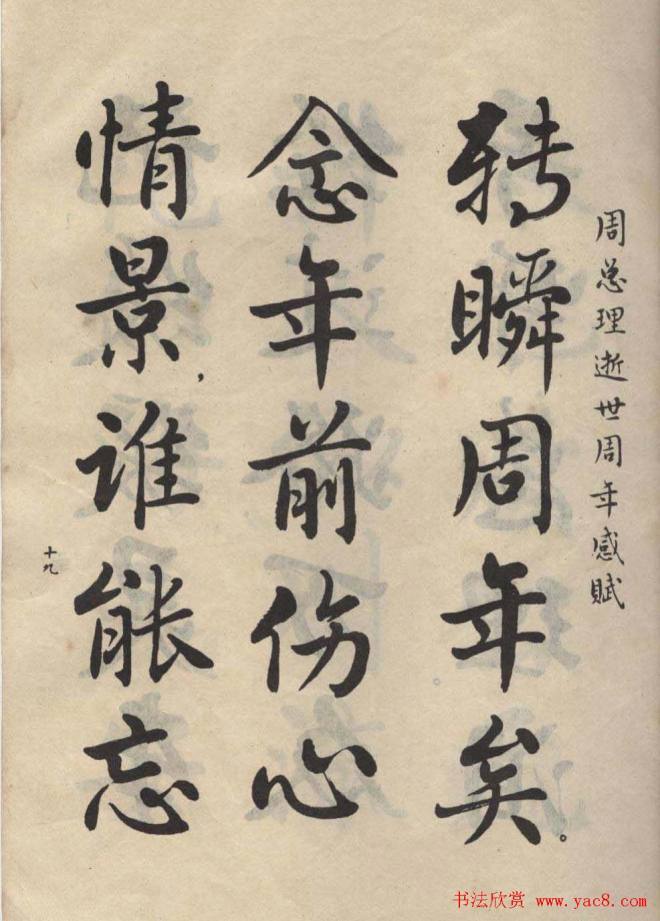 周总理逝世周年感赋
转瞬周年矣。
念年前伤心
情景，谁能忘
十九
书法欣赏 www.yac8.com